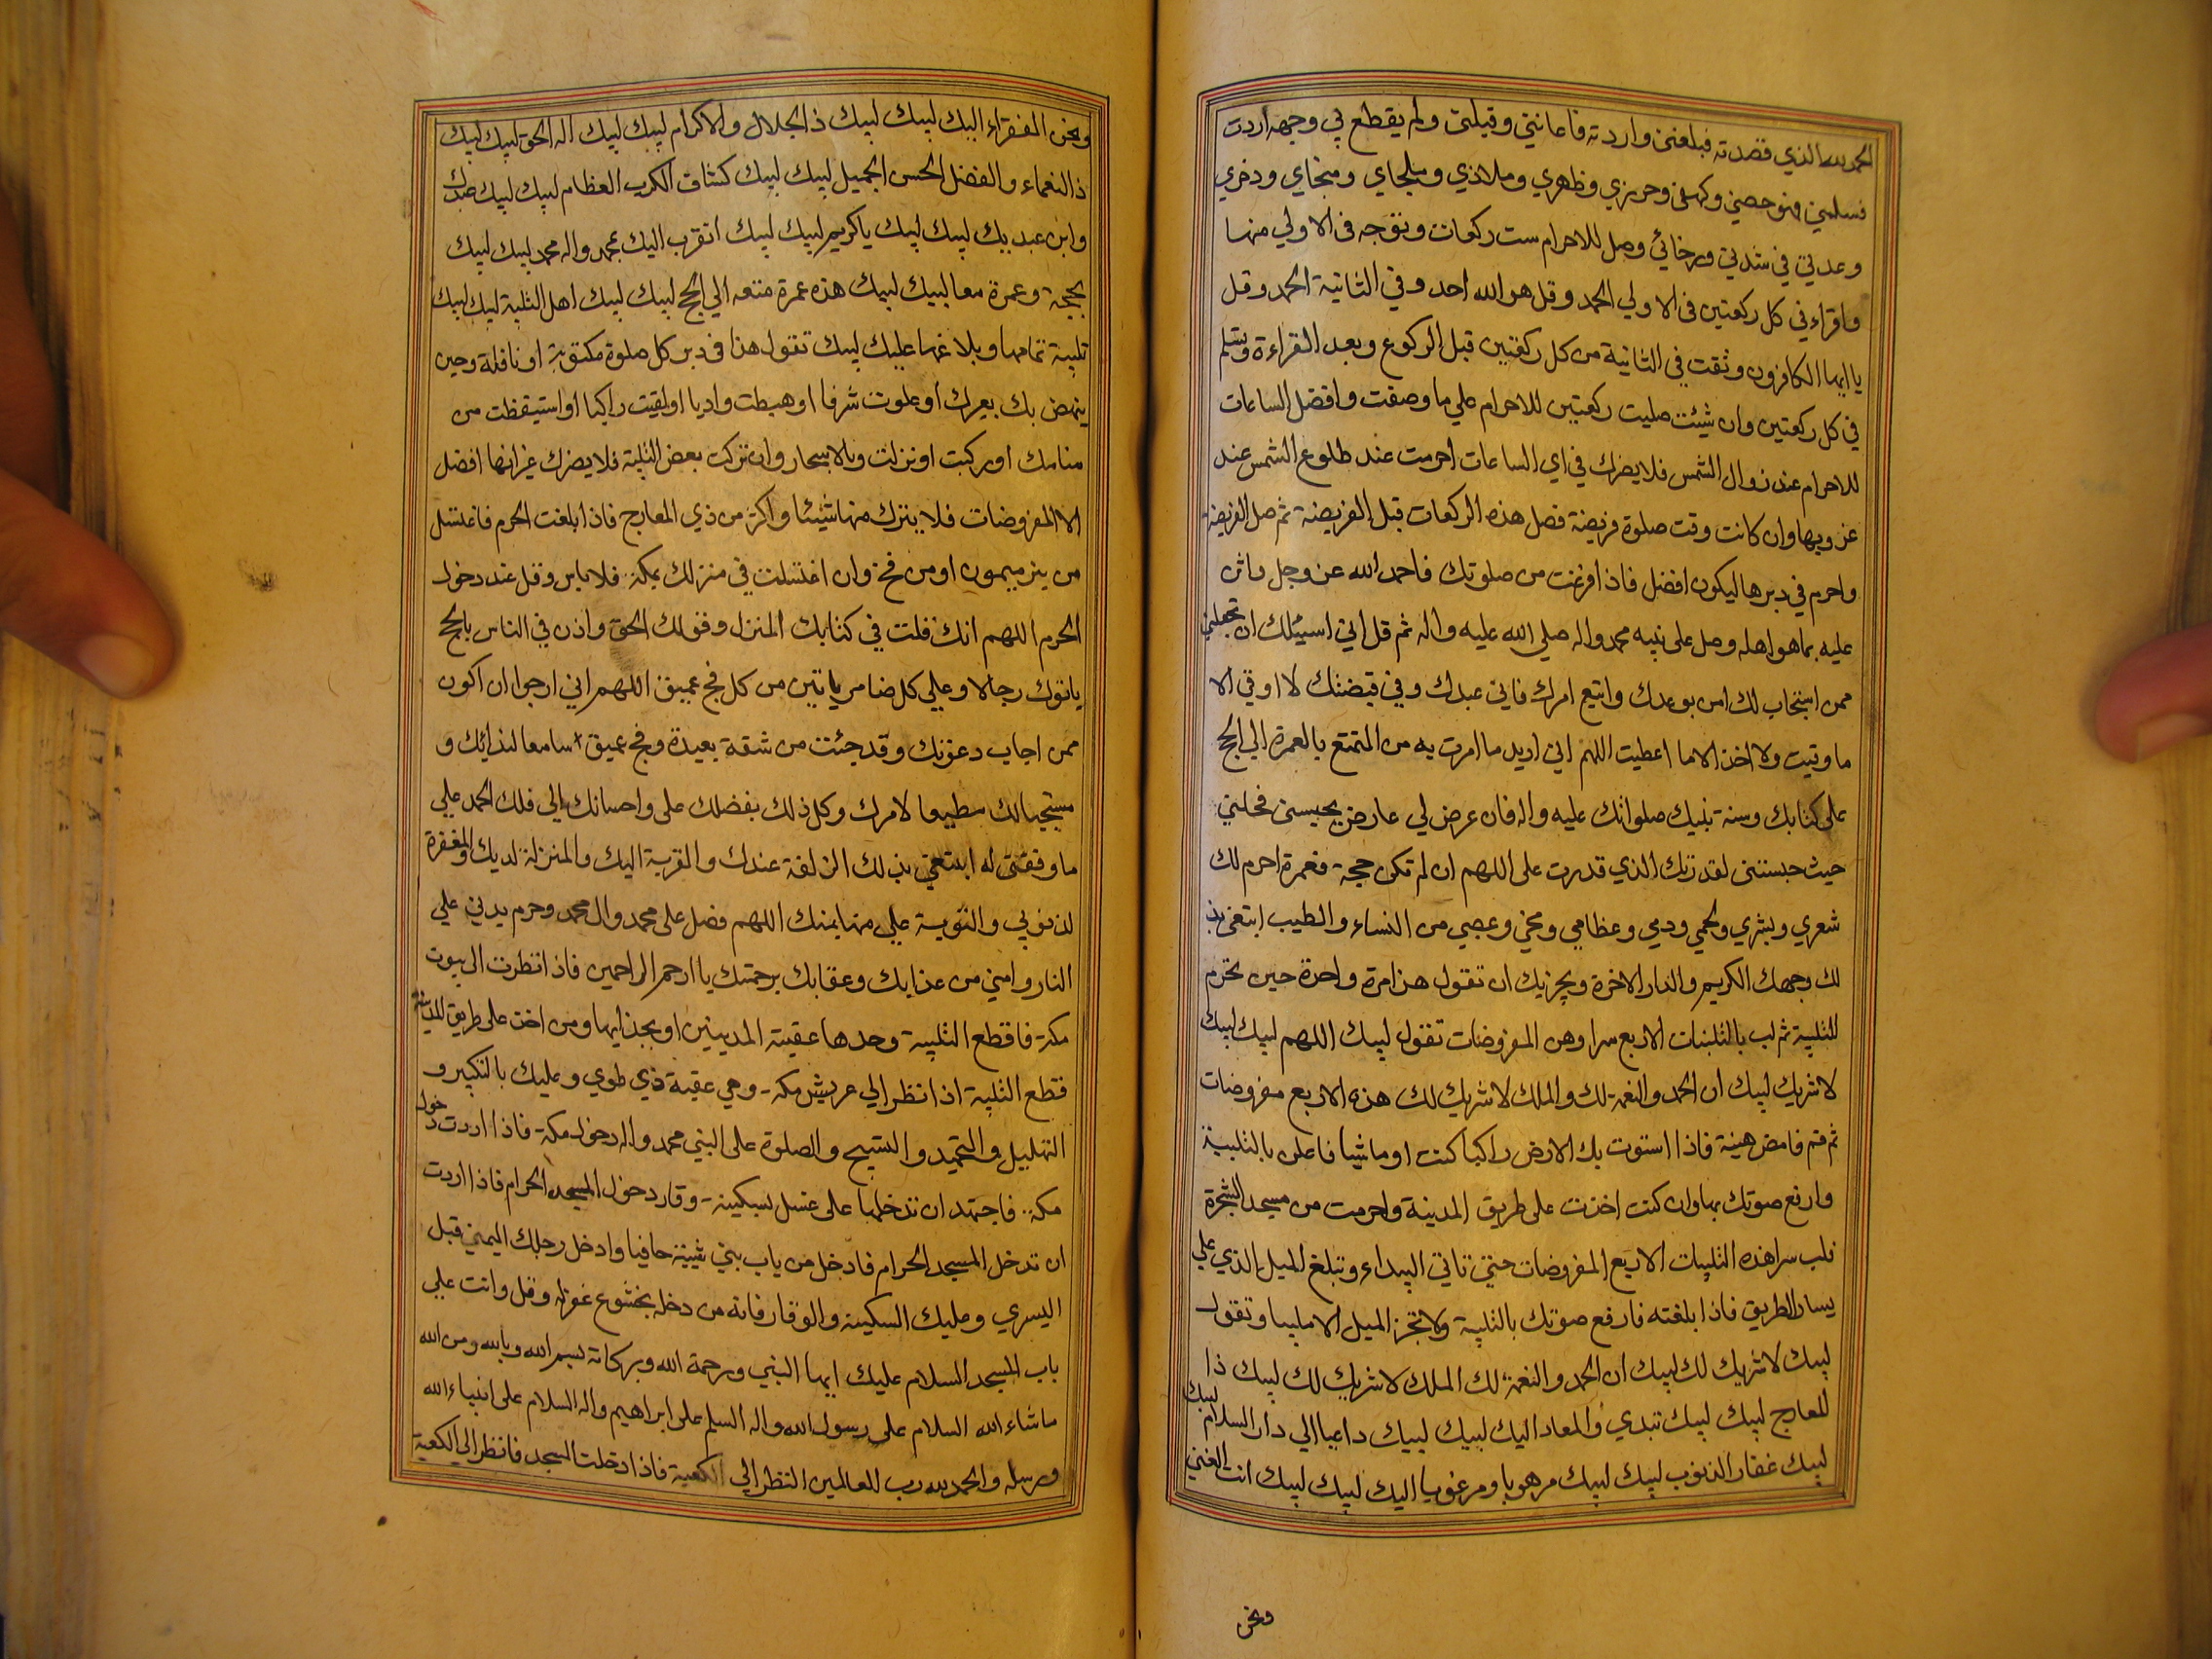 الحمد لله الذي قصدته فبلغني واردته فاعانني وقبلني ولم يقطع بي وجهه اردت
فسلمني فهو حصني وكهفي وحرزي وظهري وملاذي وملجاي ومنجاي وذخري
وعدتي في شدتي ورخائي وصل للاحرام ست ركعات وتوجه في الاولي منها
واقراء في كل ركعتين في الاولي الحمد وقل هو الله احد وفي الثانية الحمد وقل
يا ايها الكافرون وتقنت في الثانية من كل ركعتين قبل الركوع وبعد القراءة وتسلم
في كل ركعتين وان شئت صليت ركعتين للاحرام علي ما وصفت وافضل الساعات
للاحرام عند زوال الشمس فلا يضرك في اي الساعات احرمت عند طلوع الشمس عند
غروبها وان كانت وقت صلوة فريضة فصل هذه الركعات قبل الفريضة ثم صل الفريضة
واحرم في دبرها ليكون افضل فاذا فرغت من صلوتك فاحمد الله عز وجل واثن
عليه بما هو اهله وصل على نبيه محمد واله صلي الله عليه واله ثم قل اني اسئلك ان تجعلني
ممن استجاب لك امن بوعدك واتبع امرك فاني عبدك وفي قبضتك لا اوقي الا
ما وقيت ولا اخذ الا ما اعطيت اللهم اني اريد ما امرت به من التمتع بالعمرة الي الحج
على كتابك وسنة نبيك صلواتك عليه واله فان عرض لي عارض يحبسني فحلني
حيث حبستني لقدرتك الذي قدرت على اللهم ان لم تكن حجة فعمرة احرم لك
شعري وبشري ولحمي ودمي وعظامي ومخي وعصبي من النساء والطيب ابتغي بذ
لك وجهك الكريم والدار الاخرة ويجزيك ان تقول هذا مرة واحدة حين تحرم
للتلبية ثم لب بالتلبيات الاربع سرا وهن المفروضات تقول لبيك اللهم لبيك لبيك
لا شريك لبيك ان الحمد والنعمة لك والملك لا شريك لك هذه الاربع مفروضات
ثم قم فامض هنية فاذا استوت بك الارض راكبا كنت او ماشيا فاعلن بالتلبية
وارفع صوتك بها وان كنت اخذت على طريق المدينة واحرمت من مسجد الشجرة
فلب سرا هذه التلبيات الاربع المفروضات حتي تاتي البيداء وتبلغ الميل الذي علي
يسار الطريق فاذا بلغته فارفع صوتك بالتلبية ولا تجز الميل الا ملبيا وتقول
لبيك لا شريك لك لبيك ان الحمد والنعمة لك الملك لا شريك لك لبيك ذا
المعارج لبيك لبيك تبدي والمعاد اليك لبيك لبيك داعيا الي دار السلام لبيك
لبيك غفار الذنوب لبيك لبيك مرهوبا ومرغوبا اليك لبيك لبيك انت الغني
ونحن
ونحن الفقراء اليك لبيك لبيك ذا الجلال والاكرام لبيك لبيك اله الحق لبيك لبيك
ذا النعماء والفضل الحسن الجميل لبيك لبيك كشاف الكرب العظام لبيك لبيك عبدك
وابن عبديك لبيك لبيك يا كريم لبيك لبيك اتقرب اليك بمحمد واله محمد لبيك لبيك
بحجة وعمرة معا لبيك لبيك هذه عمرة متعه الي الحج لبيك لبيك اهل التلبية لبيك لبيك
تلبية تمامها وبلاغها عليك لبيك تقول هذا في دبر كل صلوة مكتوبة او نافلة وحين
ينهض بك بعيرك او علوت شرفا او هبطت واديا او لقيت راكبا او استيقظت من
منامك او ركبت او نزلت وبالاسحار وان تركت بعض التلبية فلا يضرك غير انها افضل
الا المفروضات فلا يترك منها شيئا واكثر من ذي المعارج فاذا بلغت الحرم فاغتسل
من بئر ميمون او من فخ وان اغتسلت في منزلك بمكة فلا باس وقل عند دخول
الحرم اللهم انك قلت في كتابك المنزل وقولك الحق واذن في الناس بالحج
ياتوك رجالا وعلي كل ضامر ياتين من كل فج عميق اللهم اني ارجوا ان اكون
ممن اجاب دعوتك وقد جئت من شقة بعيدة وفج عميق سامعا لندائك و
مستجيبا لك مطيعا لامرك وكل ذلك بفضلك على واحسانك الي فلك الحمد علي
ما وفقتني له ابتغي بذلك الزلفة عندك والقربة اليك والمنزلة لديك والمغفرة
لذنوبي والتوبة علي منها بمنك اللهم فصل على محمد وال محمد وحرم بدني علي
النار وامني من عذابك وعقابك برحمتك يا ارحم الراحمين فاذا نظرت الي بيوت
مكة فاقطع التلبية وحدها عقبة المدينين او بحذايها ومن اخذ على طريق المدينة
قطع التلبية اذا نظر الي عريش مكة وهي عقبة ذي طوي وعليك بالتكبير و
التهليل والتحميد والتسبيح والصلوة على النبي محمد واله دخول مكة فاذا اردت دخول
مكة فاجتهد ان تدخلها على غسل بسكينة وقار دخول المسجد الحرام فاذا اردت
ان تدخل المسجد الحرام فادخل من باب بني شيبة حافيا وادخل رجلك اليمني قبل
اليسري وعليك السكينة والوقار فانه من دخله بخشوع غفر له وقل وانت علي
باب المسجد السلام عليك ايها النبي ورحمة الله وبركاته بسم الله وبالله ومن الله
ما شاء الله السلام على رسول الله واله السلم على ابراهيم واله السلام على انبياء الله
ورسله والحمد لله رب العالمين النظر الي الكعبة فاذا دخلت المسجد فانظر الي الكعبة